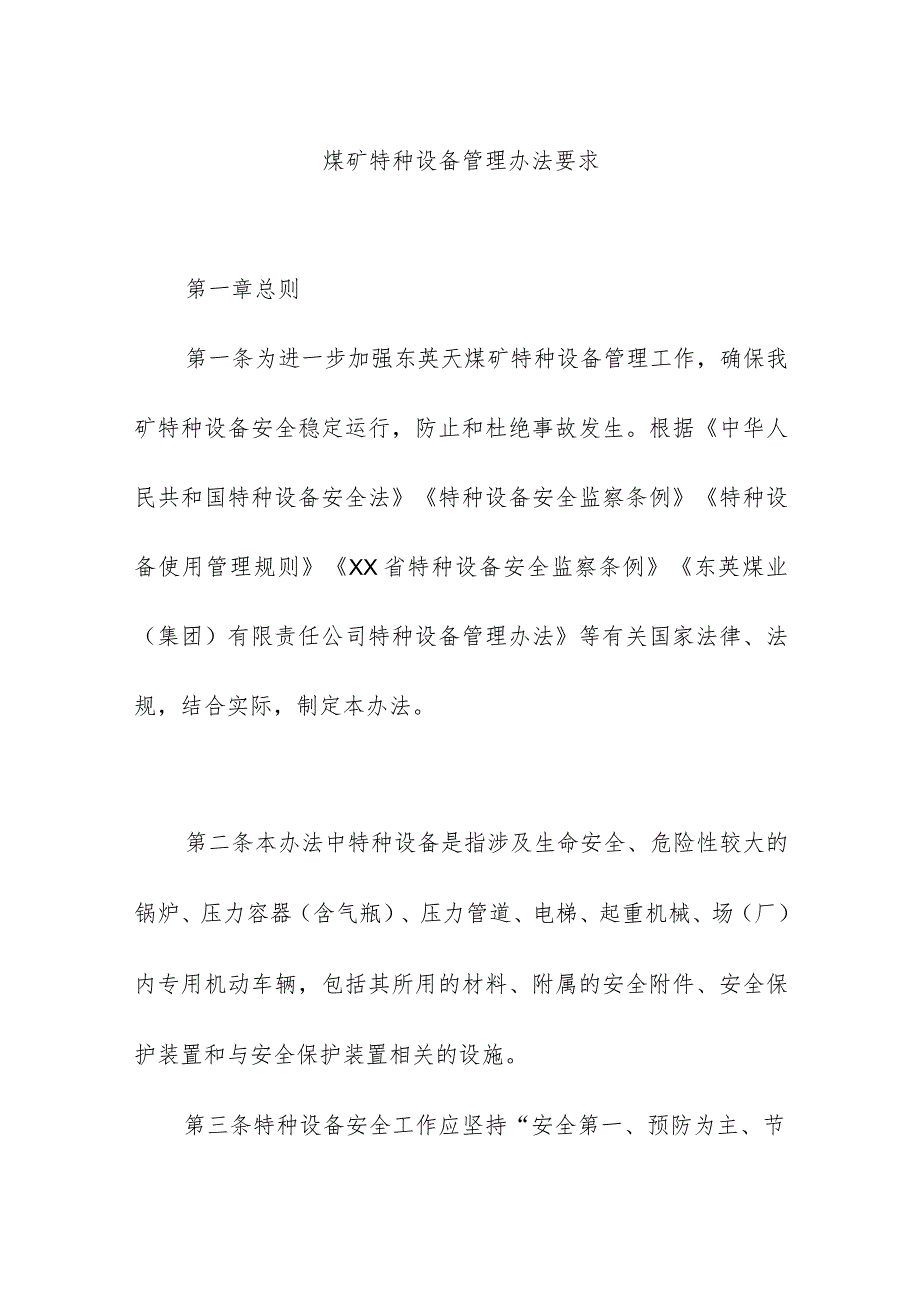 煤矿特种设备管理办法要求
第一章总则
第一条为进一步加强东英天煤矿特种设备管理工作，确保我
矿特种设备安全稳定运行，防止和杜绝事故发生。根据《中华人
民共和国特种设备安全法》《特种设备安全监察条例》《特种设
备使用管理规则》《XX省特种设备安全监察条例》《东英煤业
（集团）有限责任公司特种设备管理办法》等有关国家法律、法
规，结合实际，制定本办法。
第二条本办法中特种设备是指涉及生命安全、危险性较大的
锅炉、压力容器（含气瓶）、压力管道、电梯、起重机械、场（厂）
内专用机动车辆，包括其所用的材料、附属的安全附件、安全保
护装置和与安全保护装置相关的设施。
第三条特种设备安全工作应坚持“安全第一、预防为主、节